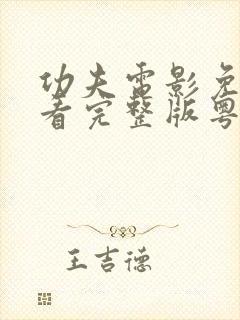 功夫電影免
看完整版粤
王吉德